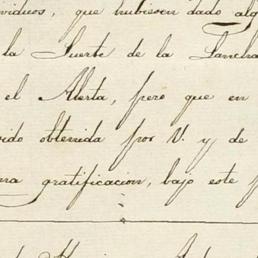 viduos, que hubiesen dado alg
la Suerte de la Lancha
el Alerta, pero que en
ido obtenida por V. y de
na gratificacion, bajo este p